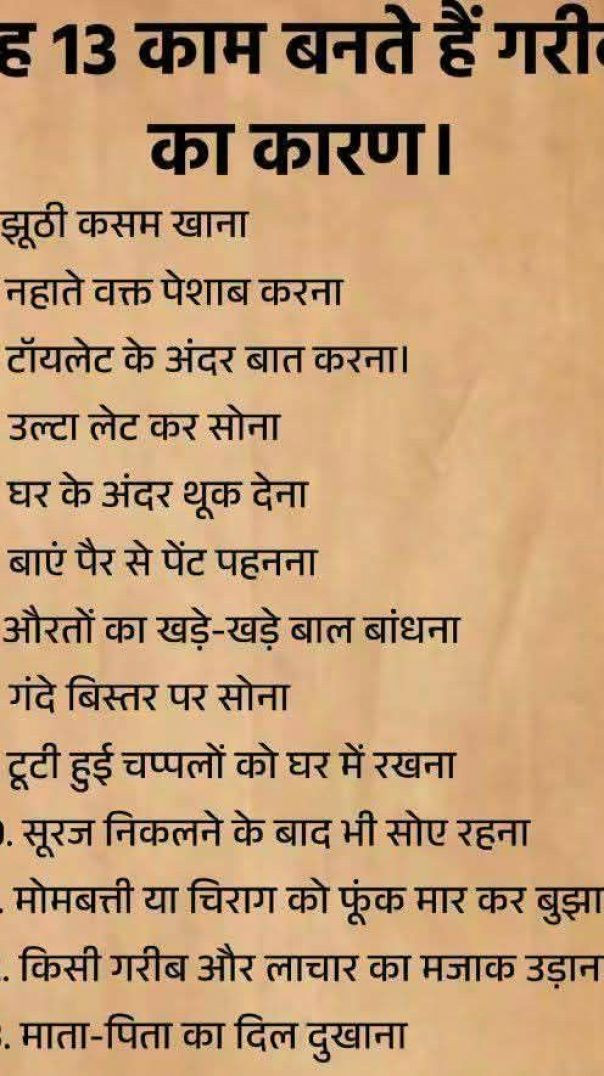 13 काम बनते हैं
का कारण।
झूठी कसम खाना
नहाते वक्त पेशाब करना
टॉयलेट के अंदर बात करना।
उल्टा लेट कर सोना
घर के अंदर थूक देना
बाएं पैर से पेंट पहनना
औरतों का खड़े-खड़े बाल बांधना
गंदे बिस्तर पर सोना
टूटी हुई चप्पलों को घर में रखना
. सूरज निकलने के बाद भी सोए रहना
. मोमबत्ती या चिराग को फूंक मार कर
. किसी गरीब और लाचार का मजाक
. माता-पिता का दिल दुखाना